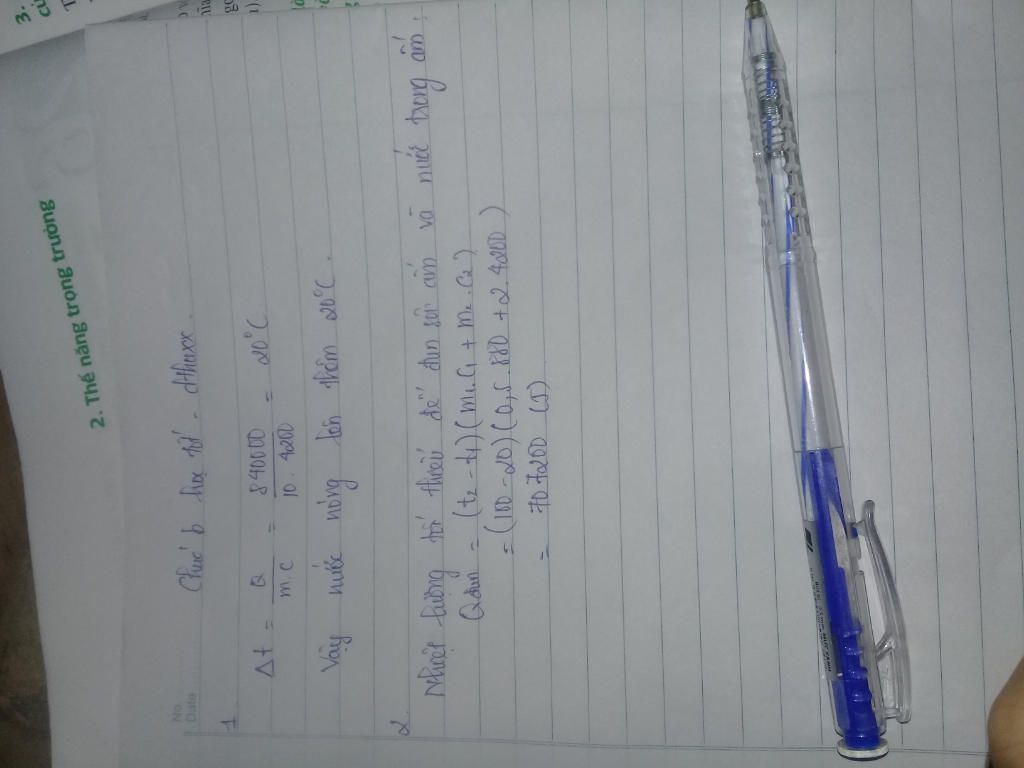 3.
2. Thế năng trong trọng trường
No.
Date
Chúc b học tốt - dthuxx.
1.
Δt = Q / m.c = 840000 / 10.4200 = 20°C.
Vậy nước nóng lên thêm 20°C.
2.
Nhiệt lượng tối thiểu để đun sôi ấm và nước trong ấm:
Qđun = (t2 - t1)(m1.C1 + m2.C2)
= (100-20)(0,5.880 + 2.4200)
= 707200 (J)